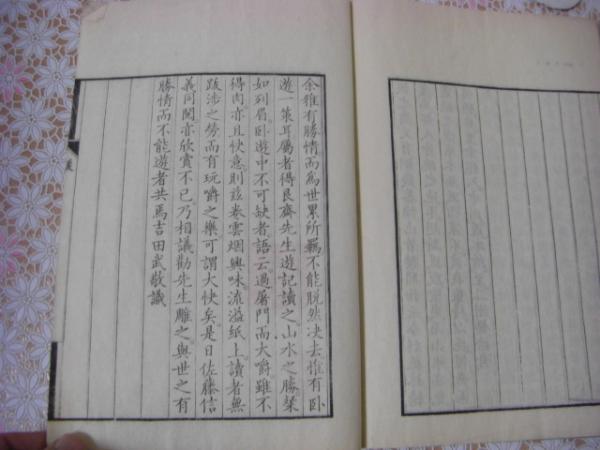 余雖有勝情而為世累所羈不能脱然决去惟有卧
遊一策耳属者得艮齋先生遊記讀之山水之勝粲
如列眉卧遊中不可缺者語云過屠門而大嚼雖不
得肉亦且快意則玆巻雲烟興味流溢紙上讀者無
跋渉之勞而有玩嚼之樂可謂大快矣是日佐藤信
義同閲亦欣賞不已乃相議勸先生雕之與世之有
勝情而不能遊者共焉吉田武敬識
跋